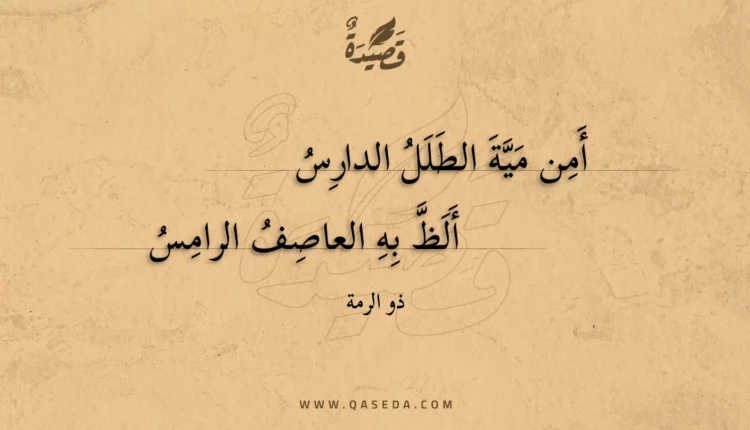 قَصِيْدَةٌ
أَمِن مَيَّةَ الطَلَلُ الدارِسُ
أَلَظَّ بِهِ العاصِفُ الرامِسُ
ذو الرمة
WWW.QASEDA.COM